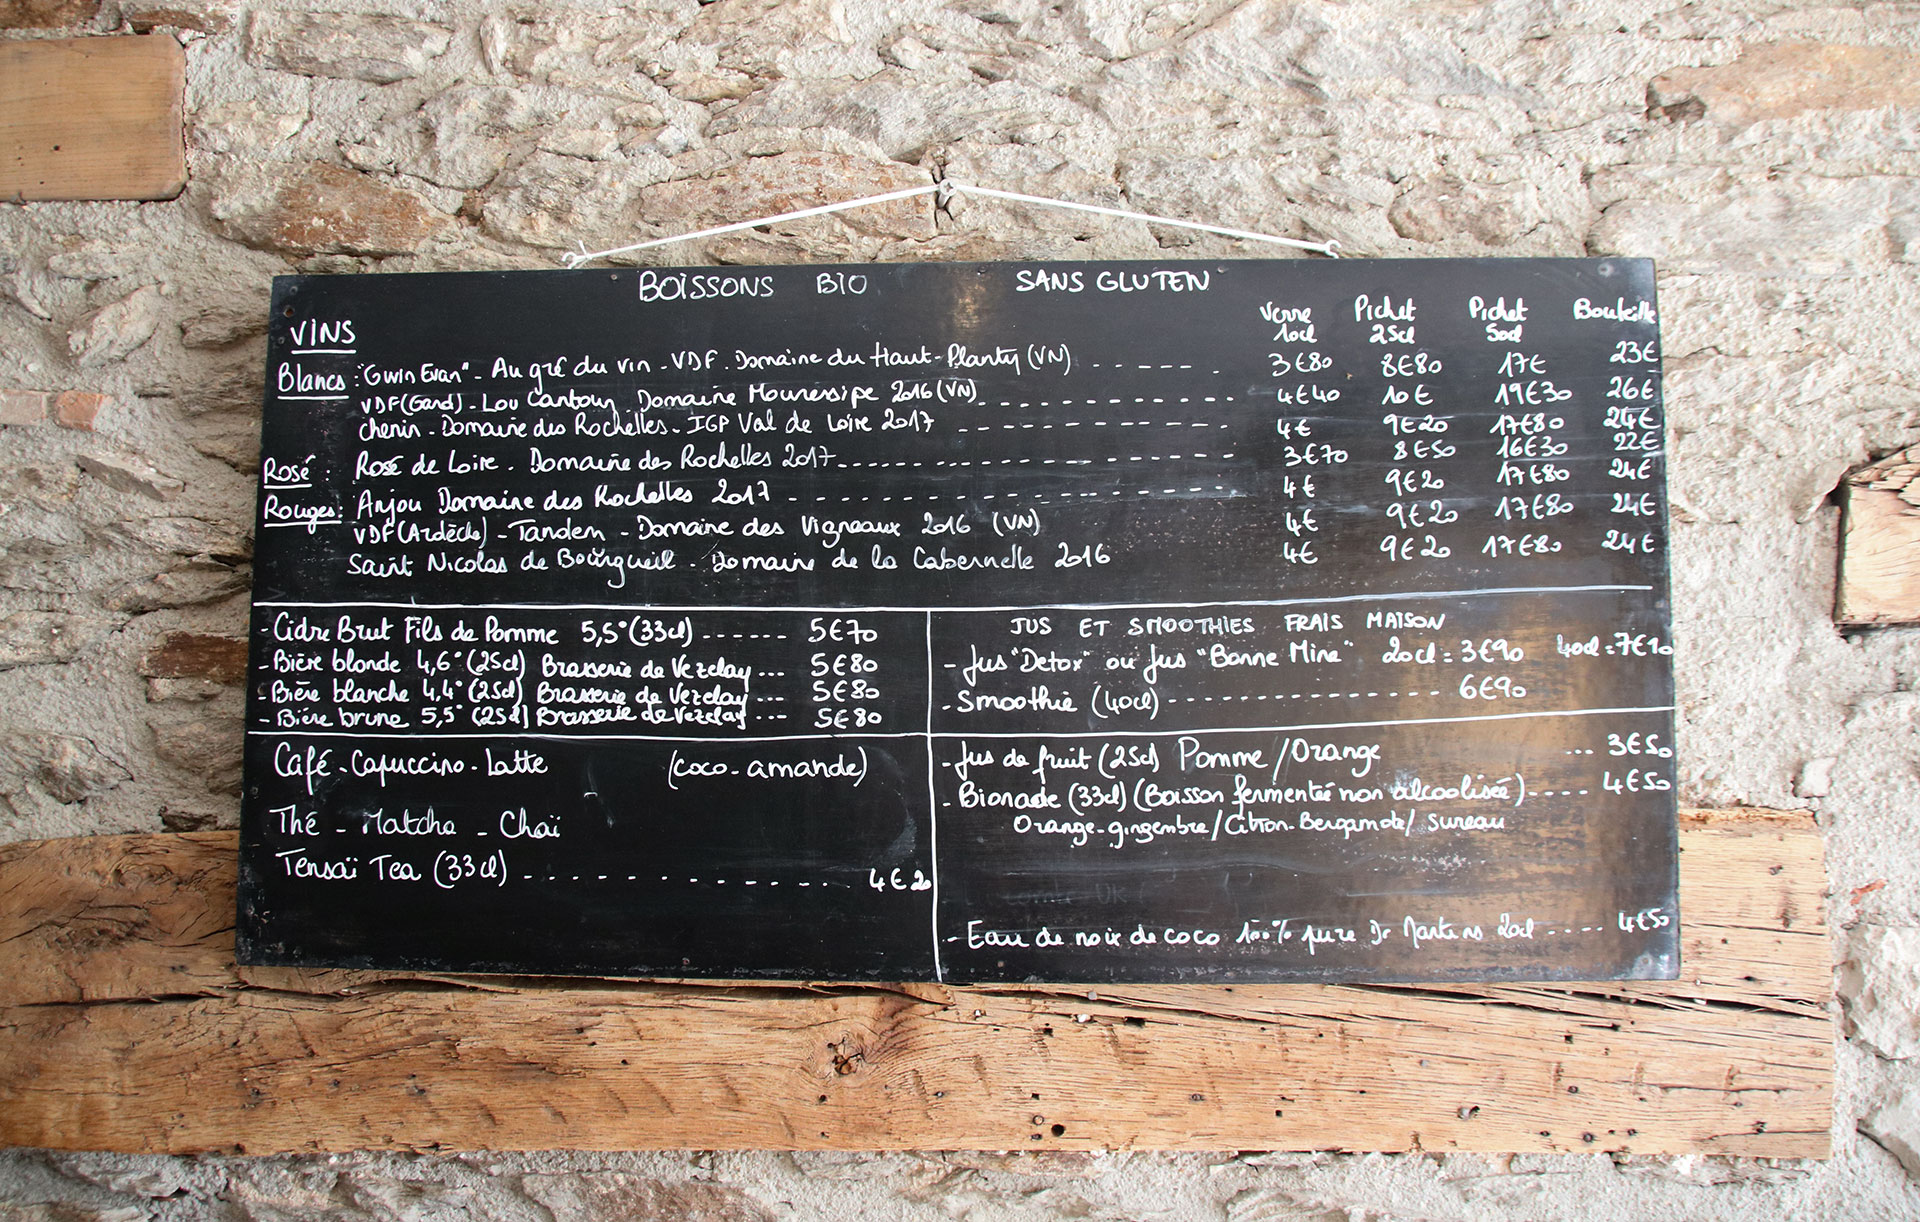 BOISSONS BIO SANS GLUTEN
Verre 10cl Pichet 25cl Pichet 50cl Bouteille
VINS
Blancs : "Gwin Evan" - Au gré du vin - VDF. Domaine du Haut-Planty (VN) - - - - - . 3€80 8€80 17€ 23€
VDF (Gard) - Lou Cantoun Domaine Mouressipe 2016 (VN) - - - - - - - - - - - - - 4€40 10€ 19€30 26€
chenin - Domaine des Rochelles - IGP Val de Loire 2017 - - - - - - - - - - - - - 4€ 9€20 17€80 24€
Rosé : Rosé de Loire . Domaine des Rochelles 2017 - - - - - - - - - - - - - 3€70 8€50 16€30 22€
Rouges : Anjou Domaine des Rochelles 2017 - - - - - - - - - - - - - 4€ 9€20 17€80 24€
VDF (Ardèche) - Tandem - Domaine des Vigneaux 2016 (VN) 4€ 9€20 17€80 24€
Saint Nicolas de Bourgueil - Domaine de la Cabernelle 2016 4€ 9€20 17€80 24€
- Cidre Brut Fils de Pomme 5,5° (33cl) - - - - - - 5€70
- Bière blonde 4,6° (25cl) Brasserie de Vezelay ... 5€80
- Bière blanche 4,4° (25cl) Brasserie de Vezelay ... 5€80
- Bière brune 5,5° (25cl) Brasserie de Vezelay ... 5€80
JUS ET SMOOTHIES FRAIS MAISON
- Jus "Detox" ou Jus "Bonne Mine" 20cl = 3€90 40cl = 7€10
- Smoothie (40cl) - - - - - - - - - - - - - 6€90
Café - Capuccino - Latte (coco - amande)
Thé - Matcha - Chaï
Tensaï Tea (33cl) - - - - - - - - - - - - - 4€20
- Jus de fruit (25cl) Pomme / Orange ... 3€50
- Bionade (33cl) (Boisson fermentée non alcoolisée) - - - - 4€50
Orange-gingembre / Citron-Bergamote / Sureau
- Eau de noix de coco 100% pure Dr Martins 20cl - - - - 4€50